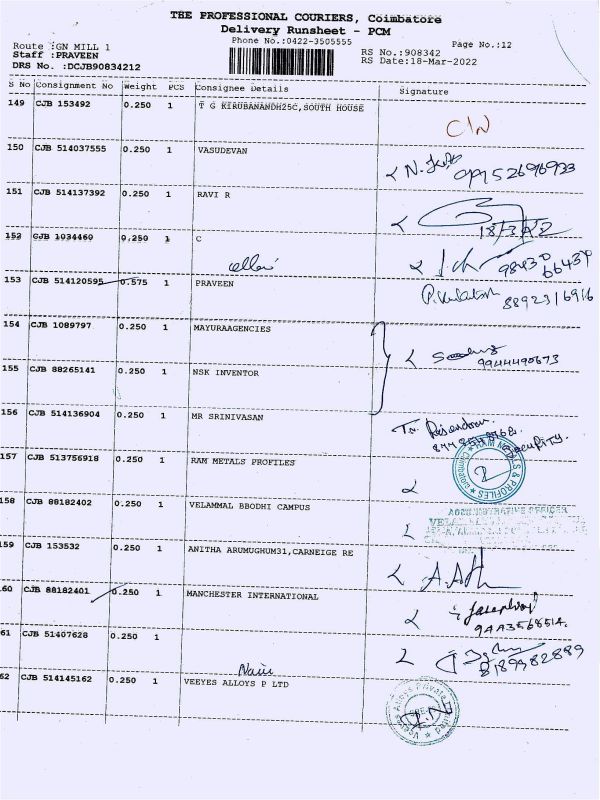 THE PROFESSIONAL COURIERS, Coimbatore
Delivery Runsheet - PCM
Phone No.:0422-3505555
Page No.:12
Route :GN MILL 1
RS No.:908342
Staff :PRAVEEN
RS Date:18-Mar-2022
DRS No. :DCJB90834212
S No Consignment No Weight PCS Consignee Details Signature
149 CJB 153492 0.250 1 T G KIRUBANANDH25C,SOUTH HOUSE
150 CJB 514037555 0.250 1 VASUDEVAN
151 CJB 514137392 0.250 1 RAVI R
18/3/22
152 CJB 1034460 0.250 1 C
153 CJB 514120595 0.575 1 PRAVEEN
8892316916
154 CJB 1089797 0.250 1 MAYURAAGENCIES
9944490673
155 CJB 88265141 0.250 1 NSK INVENTOR
156 CJB 514136904 0.250 1 MR SRINIVASAN
Security.
157 CJB 513756918 0.250 1 RAM METALS PROFILES
158 CJB 88182402 0.250 1 VELAMMAL BBODHI CAMPUS
ADMINISTRATIVE OFFICER
159 CJB 153532 0.250 1 ANITHA ARUMUGHUM31,CARNEIGE RE
60 CJB 88182401 0.250 1 MANCHESTER INTERNATIONAL
61 CJB 51407628 0.250 1
8189982889
62 CJB 514145162 0.250 1 VEEYES ALLOYS P LTD
Veeyes Alloys Private Limited